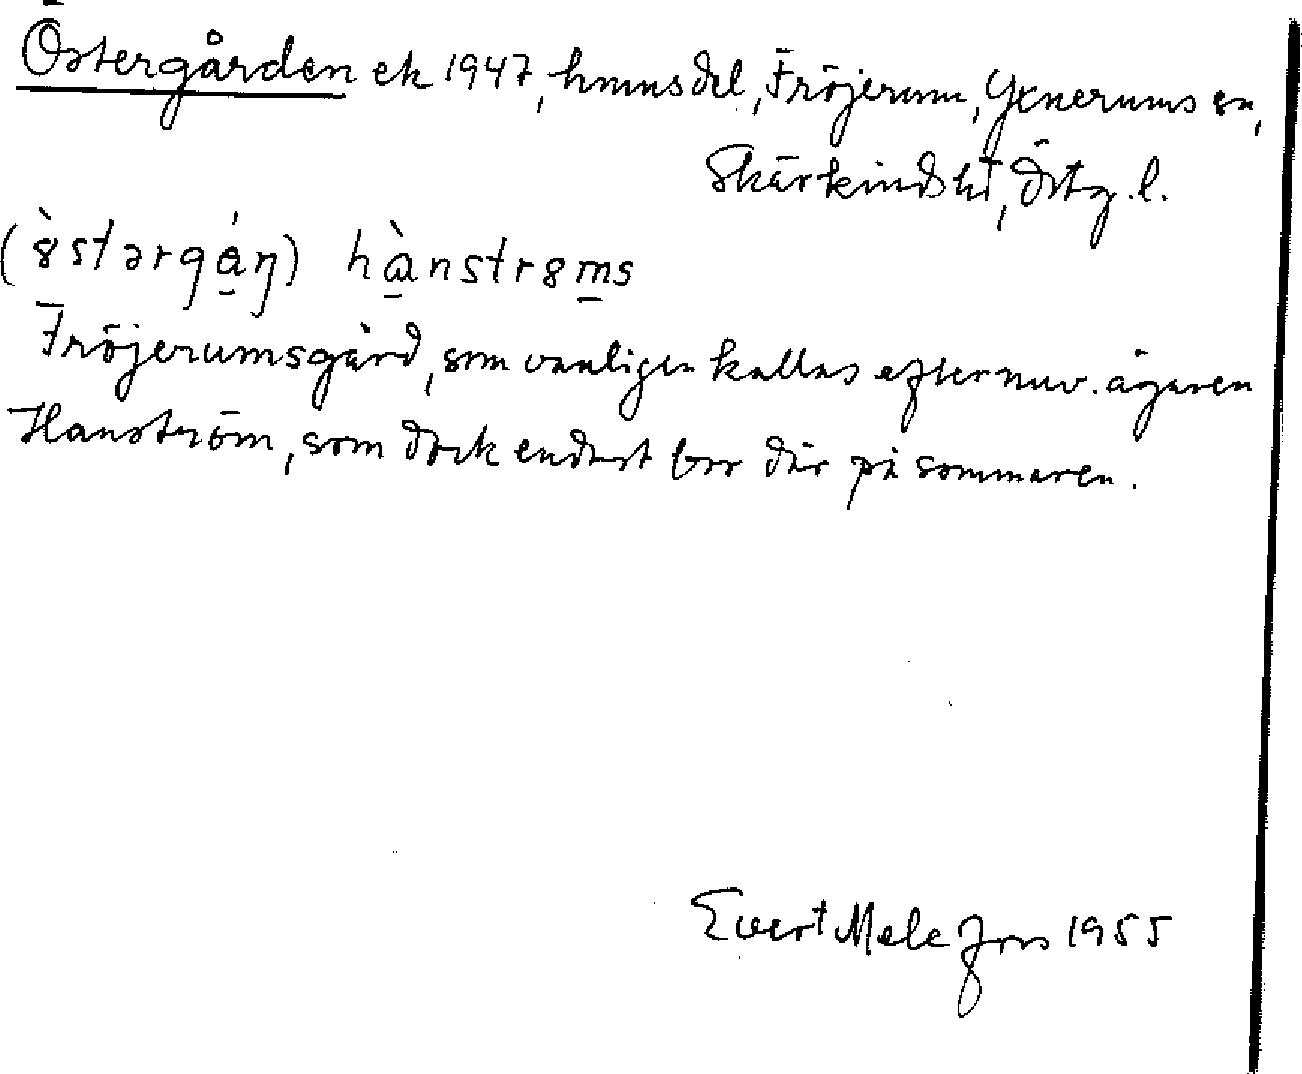 Östergården ek 1947, hmnsdel, Fröjerum, Yxnerums sn,
Skärkinds hd, Östg.l.
(ꝏ̀stərgá̱ŋ) hà̱nstrꝏm̱s
Fröjerumsgård, som vanligen kallas efter nuv. ägaren
Hanström, som dock endast bor där på sommaren.
Evert Melefors 1955